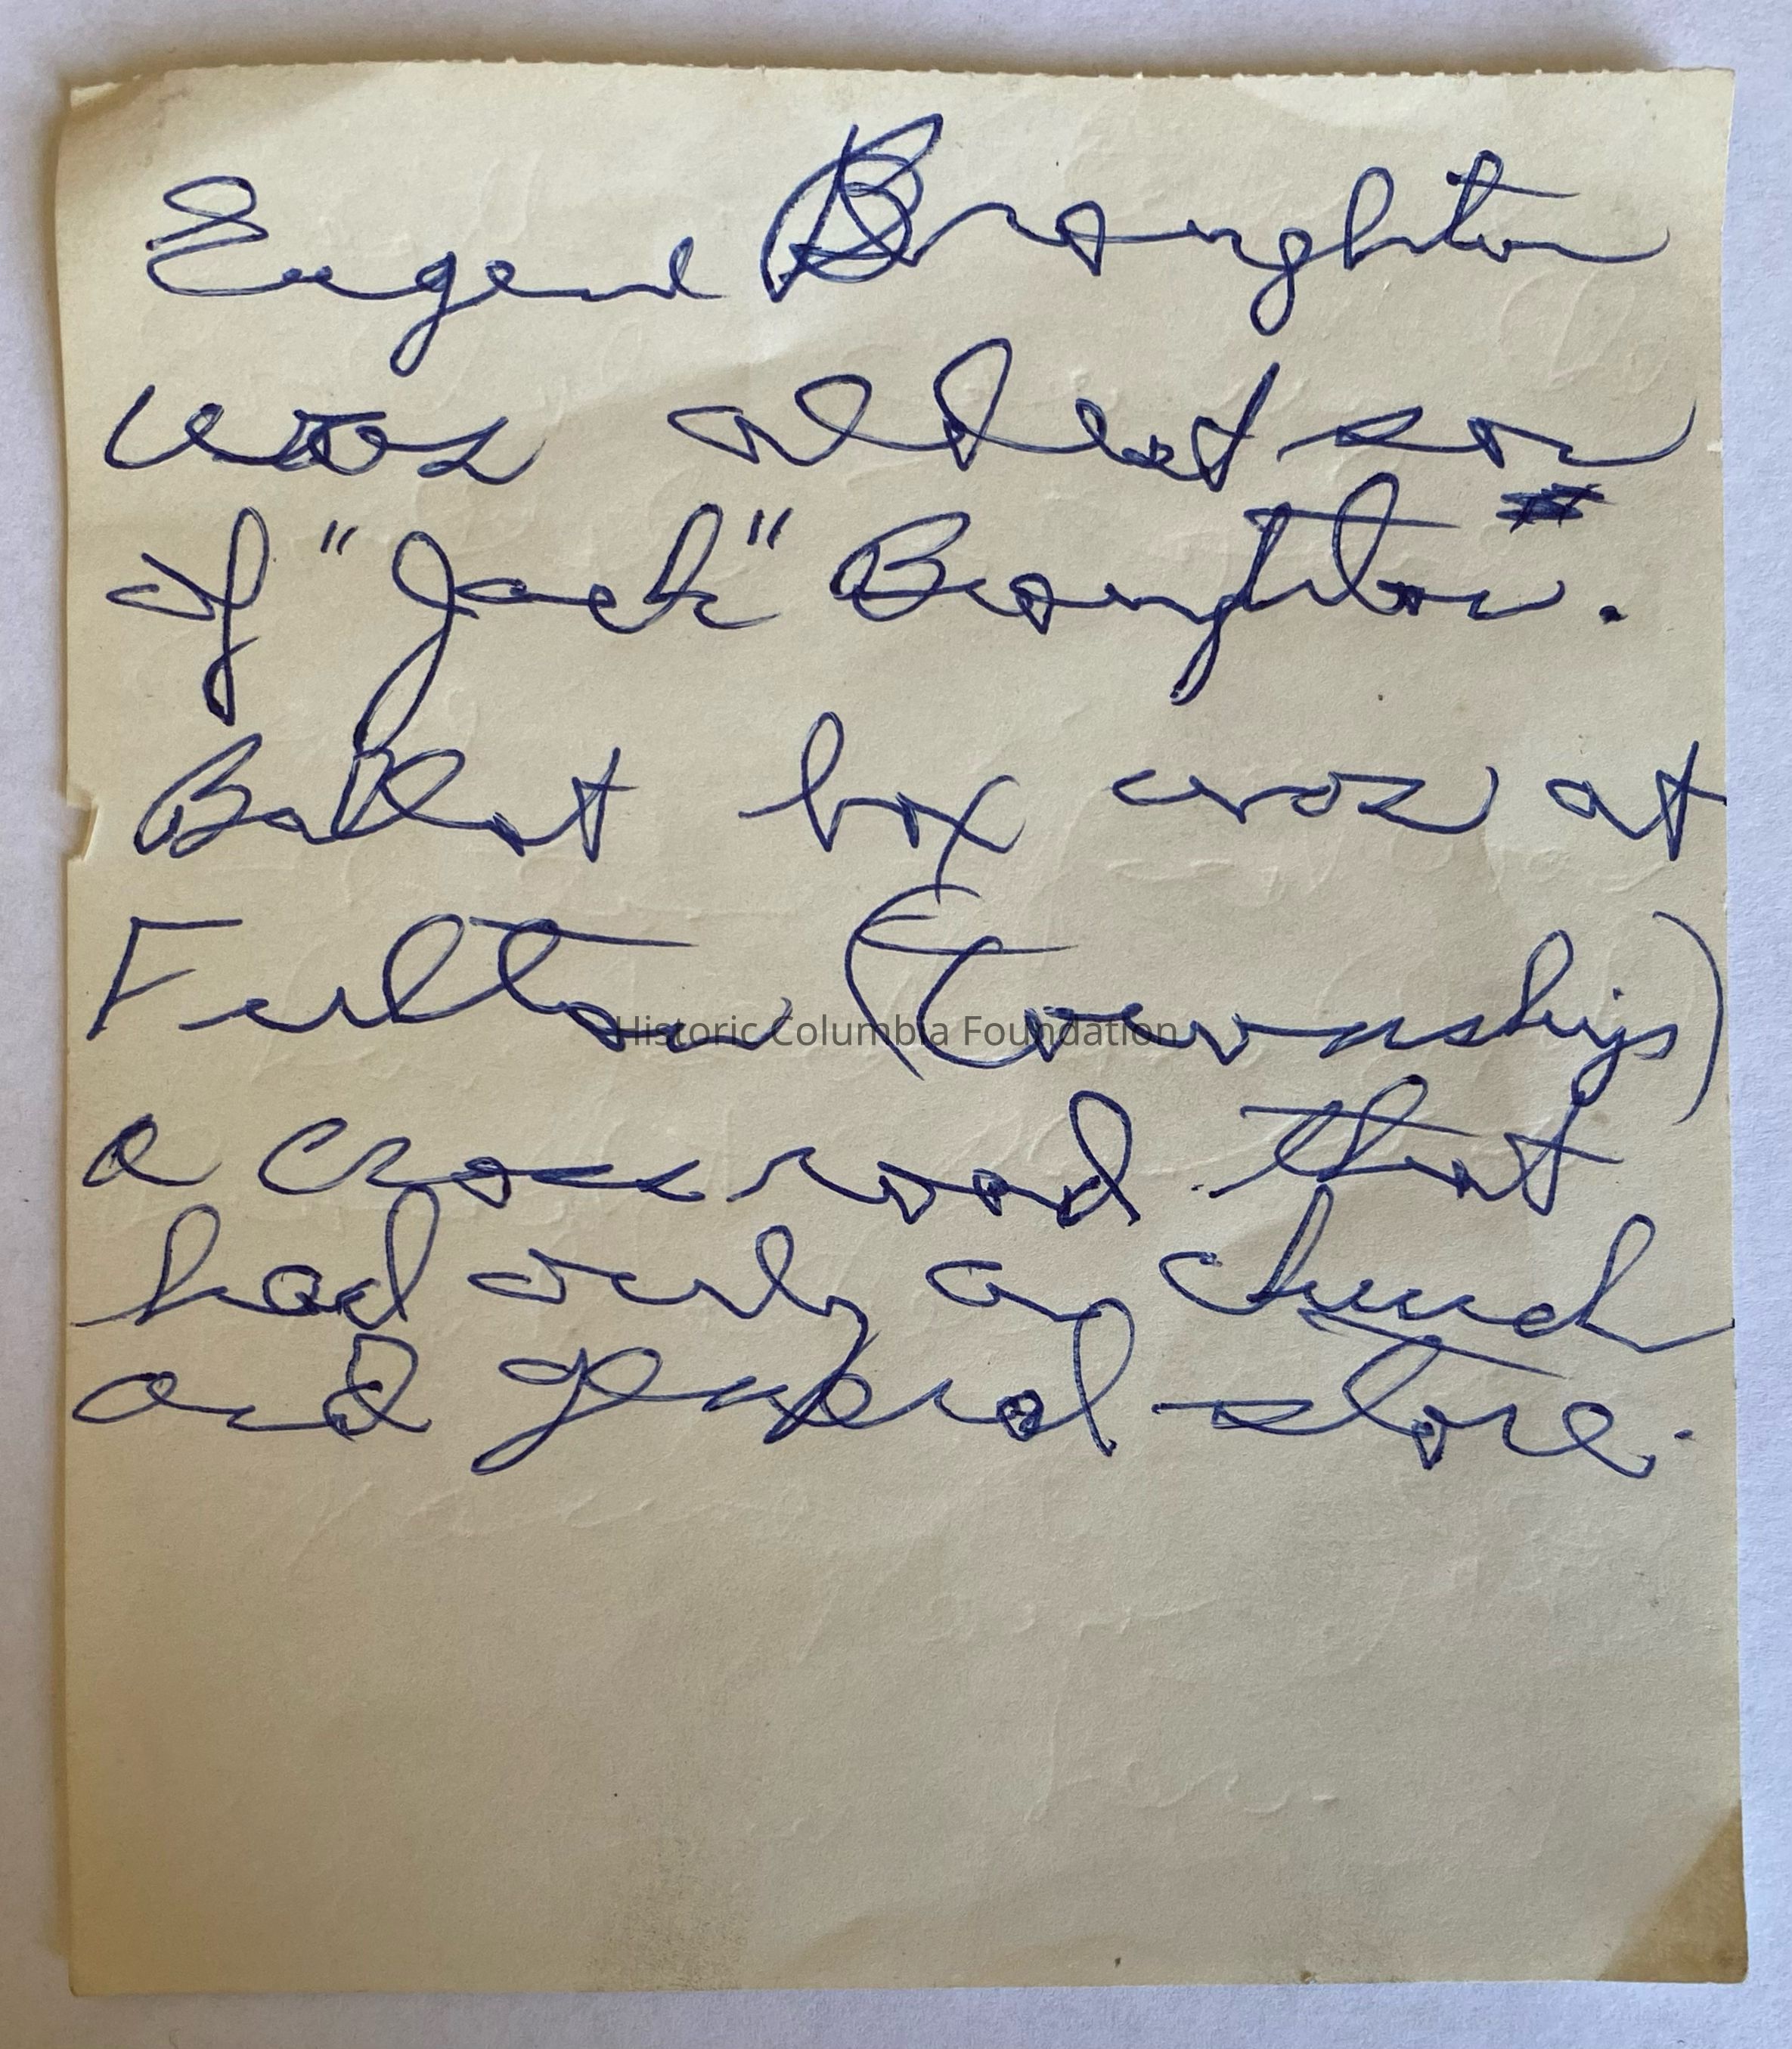 Eugene Broughton
was oldest son
of "Jack" Broughton.
Ballot box was at
Fulton (township)
Historic Columbia Foundation
a crossroad that
had only a church
and general store.